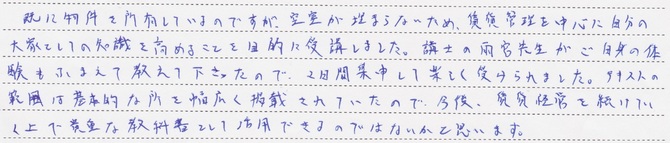 既に物件を所有しているのですが、空室が埋まらないため、賃貸管理を中心に自分の
大家としての知識を高めることを目的に受講しました。講士の雨宮先生がご自身の体
験もふまえて教えて下さったので、2日間集中して楽しく受けられました。テキストの
範囲は基本的な所を幅広く掲載されていたので、今後、賃貸経営を続けてい
く上で貴重な教科書として活用できるのではないかと思います。